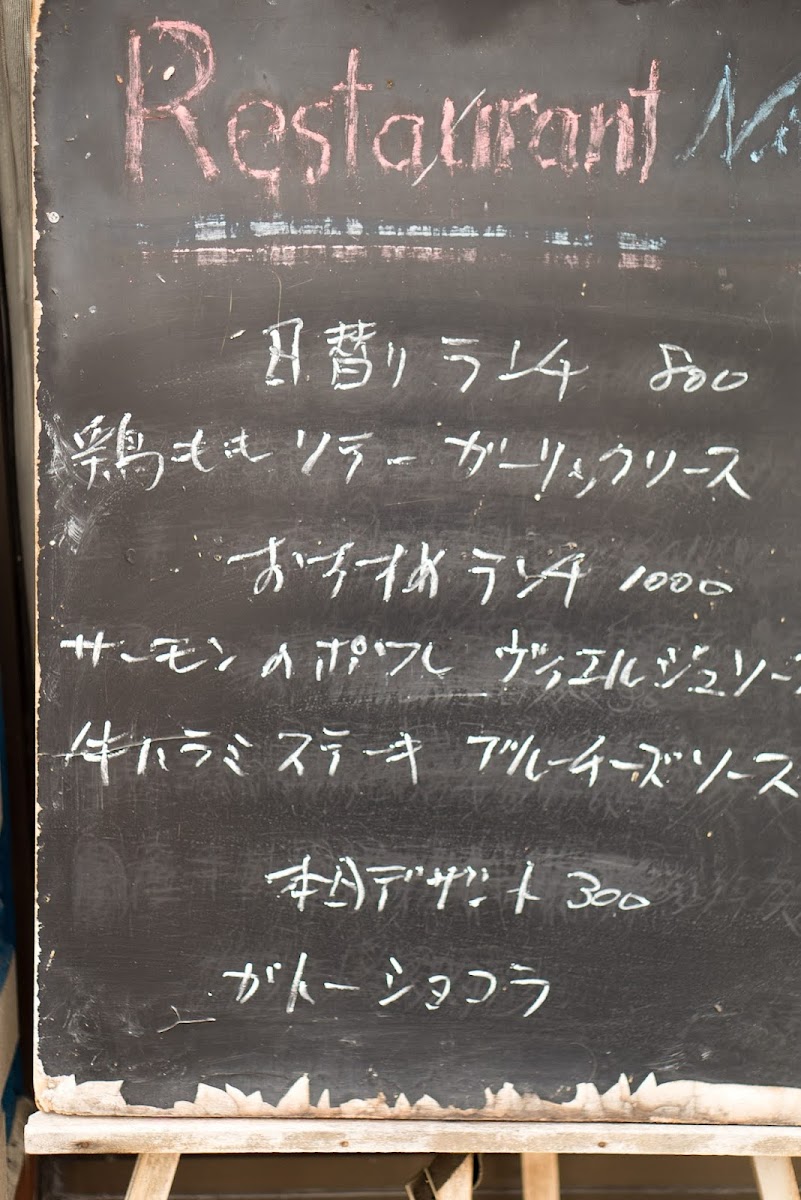 Restaurant
日替りランチ 800
鶏ももソテー ガーリックソース
おすすめランチ 1000
サーモンのポワレ ヴィエルジュソー
牛ハラミステーキ ブルーチーズソース
本日デザート 300
ガトーショコラ